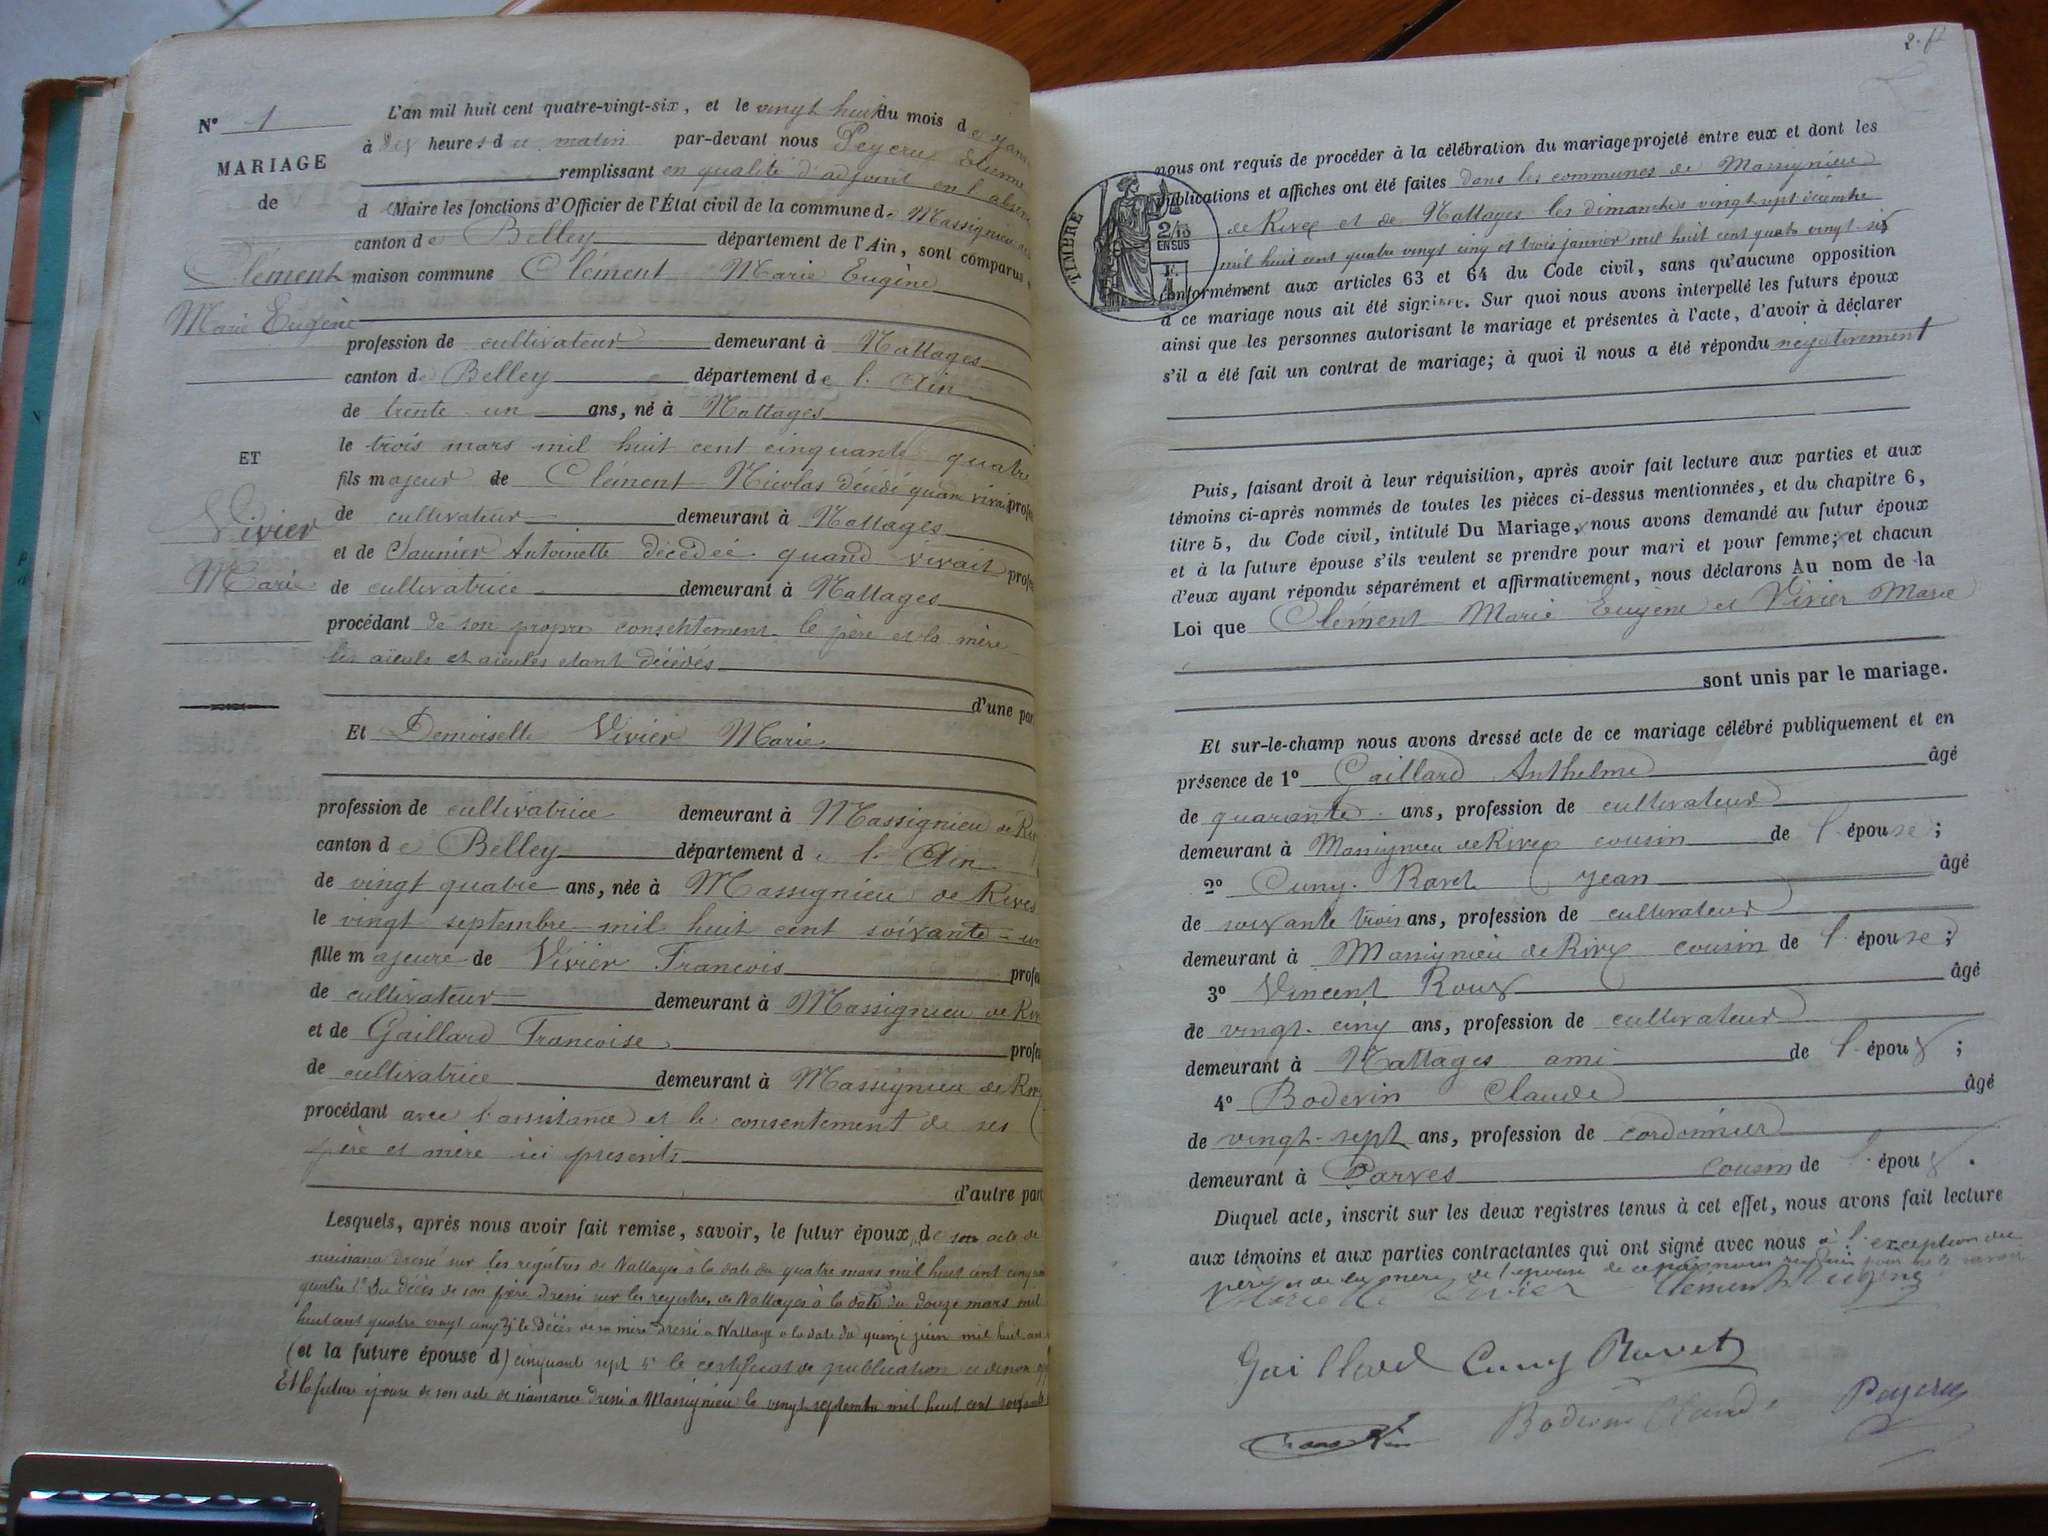 N° 1
MARIAGE
de
Clément
Marie Eugène
ET
Vivier
Marie
L'an mil huit cent quatre-vingt-six, et le vingt huit du mois de
à dix heures du matin par-devant nous Peycru Etienne
remplissant en qualité d'adjoint en l'absence
d Maire les fonctions d'Officier de l'État civil de la commune de Massignieu
canton de Belley département de l'Ain, sont comparus
maison commune Clément Marie Eugène
profession de cultivateur demeurant à Nattages
canton de Belley département de l'Ain
de trente un ans, né à Nattages
le trois mars mil huit cent cinquante quatre
fils majeur de Clément Nicolas décédé quand vivait
de cultivateur demeurant à Nattages
et de Saunier Antoinette décédée quand vivait
de cultivatrice demeurant à Nattages
procédant de son propre consentement le père et la mère
les aïeuls et aïeules étant décédés
d'une par
Et Demoiselle Vivier Marie
profession de cultivatrice demeurant à Massignieu de
canton de Belley département de l'Ain
de vingt quatre ans, née à Massignieu de Rives
le vingt septembre mil huit cent soixante un
fille majeure de Vivier Francois
de cultivateur demeurant à Massignieu de
et de Gaillard Francoise
de cultivatrice demeurant à Massignieu de
procédant avec l'assistance et le consentement de ses
père et mère ici presents
d'autre part
Lesquels, après nous avoir fait remise, savoir, le futur époux de son acte de
naissance dressé sur les registres de Nattages à la date du quatre mars mil huit cent
quatre 2° du décès de son père dressé sur les registres de Nattages à la date du douze mars mil
huit cent quatre vingt cinq 3° le décès de sa mère dressé a Nattages a la date du quinze juin mil huit
(et la future épouse d) cinquante sept le certificat de publication et de non
Et la future épouse de son acte de naissance dressé a Massignieu le vingt septembre mil huit cent soixante
2.
TIMBRE
2/13
EN SUS
nous ont requis de procéder à la célébration du mariage projeté entre eux et dont les
publications et affiches ont été faites dans les communes de Massignieu
de Rives et de Nattages les dimanches vingt sept décembre
mil huit cent quatre vingt cinq et trois janvier mil huit cent quatre vingt six
conformément aux articles 63 et 64 du Code civil, sans qu'aucune opposition
à ce mariage nous ait été signifiée. Sur quoi nous avons interpellé les futurs époux
ainsi que les personnes autorisant le mariage et présentes à l'acte, d'avoir à déclarer
s'il a été fait un contrat de mariage; à quoi il nous a été répondu négativement
Puis, faisant droit à leur réquisition, après avoir fait lecture aux parties et aux
témoins ci-après nommés de toutes les pièces ci-dessus mentionnées, et du chapitre 6,
titre 5, du Code civil, intitulé Du Mariage, nous avons demandé au futur époux
et à la future épouse s'ils veulent se prendre pour mari et pour femme; et chacun
d'eux ayant répondu séparément et affirmativement, nous déclarons Au nom de la
Loi que Clément Marie Eugène et Vivier Marie
sont unis par le mariage.
Et sur-le-champ nous avons dressé acte de ce mariage célébré publiquement et en
présence de 1° Gaillard Anthelme âgé
de quarante ans, profession de cultivateur
demeurant à Massignieu de Rives cousin de l'épouse;
2° Cuny Ravet Jean âgé
de soixante trois ans, profession de cultivateur
demeurant à Massignieu de Rives cousin de l'épouse;
3° Vincent Roux âgé
de vingt-cinq ans, profession de cultivateur
demeurant à Nattages ami de l'époux;
4° Boderin Claude âgé
de vingt-sept ans, profession de cordonnier
demeurant à Parves cousin de l'époux.
Duquel acte, inscrit sur les deux registres tenus à cet effet, nous avons fait lecture
aux témoins et aux parties contractantes qui ont signé avec nous à l'exception du
père et de la mère de l'épouse
Marie Vivier Clément Eugène
Gaillard Cuny Ravet
Boderin Claude Peycru